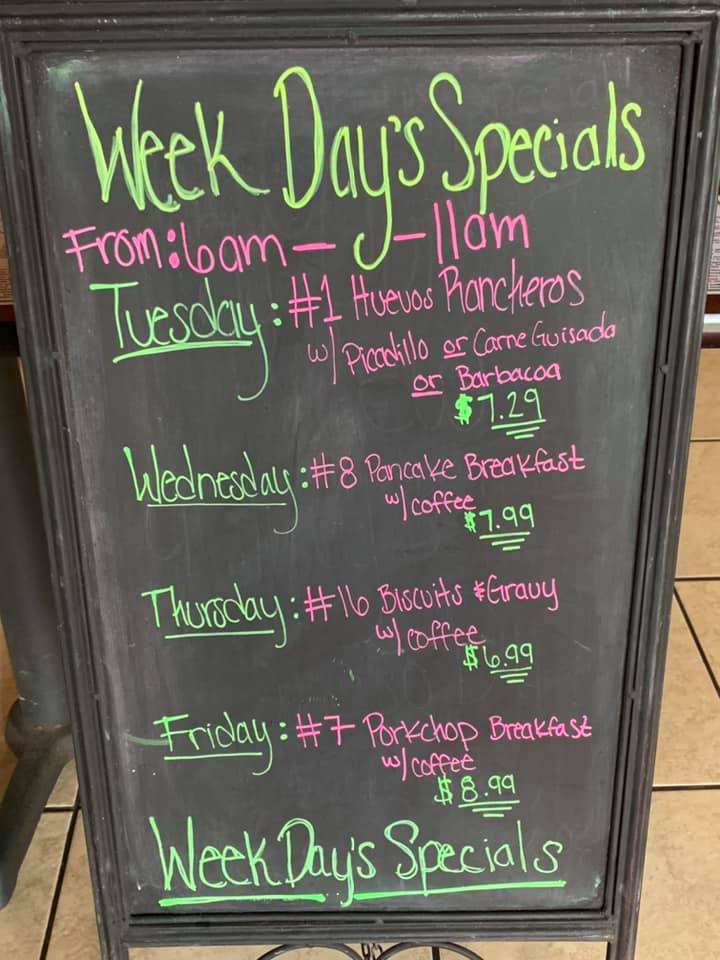 Week Day's Specials
From: 6am - - 11am
Tuesday: #1 Huevos Rancheros
w/ Picadillo or Carne Guisada
or Barbacoa
$7.29
Wednesday: #8 Pancake Breakfast
w/ coffee
$7.99
Thursday: #16 Biscuits & Gravy
w/ coffee
$6.99
Friday: #7 Porkchop Breakfast
w/ coffee
$8.99
Week Day's Specials